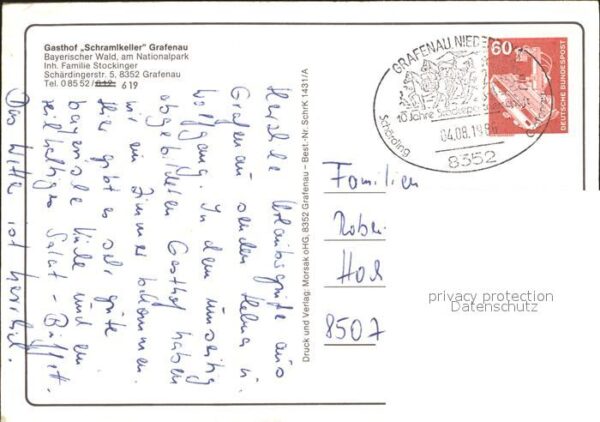 Gasthof „Schramlkeller" Grafenau
Bayerischer Wald, am Nationalpark
Inh. Familie Stockinger
Schärdingerstr. 5, 8352 Grafenau
Tel. 0 85 52 / 812 619
Herzliche Urlaubsgrüße aus
Grafenau senden Helma u.
Wolfgang. In dem umseitig
abgebildeten Gasthof haben
wir ein Zimmer bekommen.
Hier gibt es sehr gute
bayerische Küche und ein
reichhaltiges Salat-Büffet.
Das Wetter ist herrlich.
Druck und Verlag: Morsak oHG, 8352 Grafenau – Best.-Nr. SchrK 1431/A
GRAFENAU NIEDER
10 Jahre
Schärding
04.08.19
8352
60
DEUTSCHE BUNDESPOST
Familien
Rober
Hos
8507
privacy protection
Datenschutz